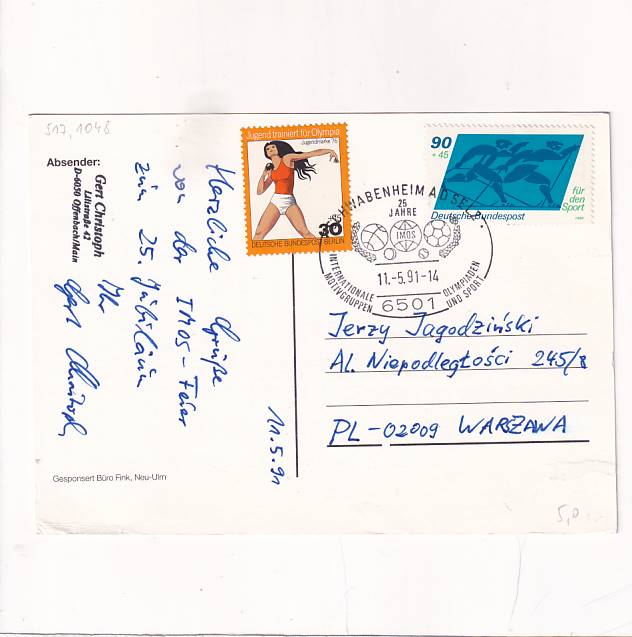 517, 1048
Absender:
Gert Christoph
Lilistraße 42
D-6050 Offenbach/Main
Herzliche Grüße
von der IMOS-Feier
zum 25. Jubiläum
Ihr
Gert Christoph
11.5.91
Gesponsert Büro Fink, Neu-Ulm
Jugend trainiert für Olympia
Jugendmarke 76
30
DEUTSCHE BUNDESPOST BERLIN
90
+ 45
für
den
Sport
Deutsche Bundespost
1980
SCHWABENHEIM A D SELZ
25
JAHRE
IMOS
11.-5.91-14
INTERNATIONALE
MOTIVGRUPPEN
OLYMPIADEN
UND SPORT
6501
Jerzy Jagodziński
Al. Niepodległości 245/8
PL-02009 WARSZAWA
5,0